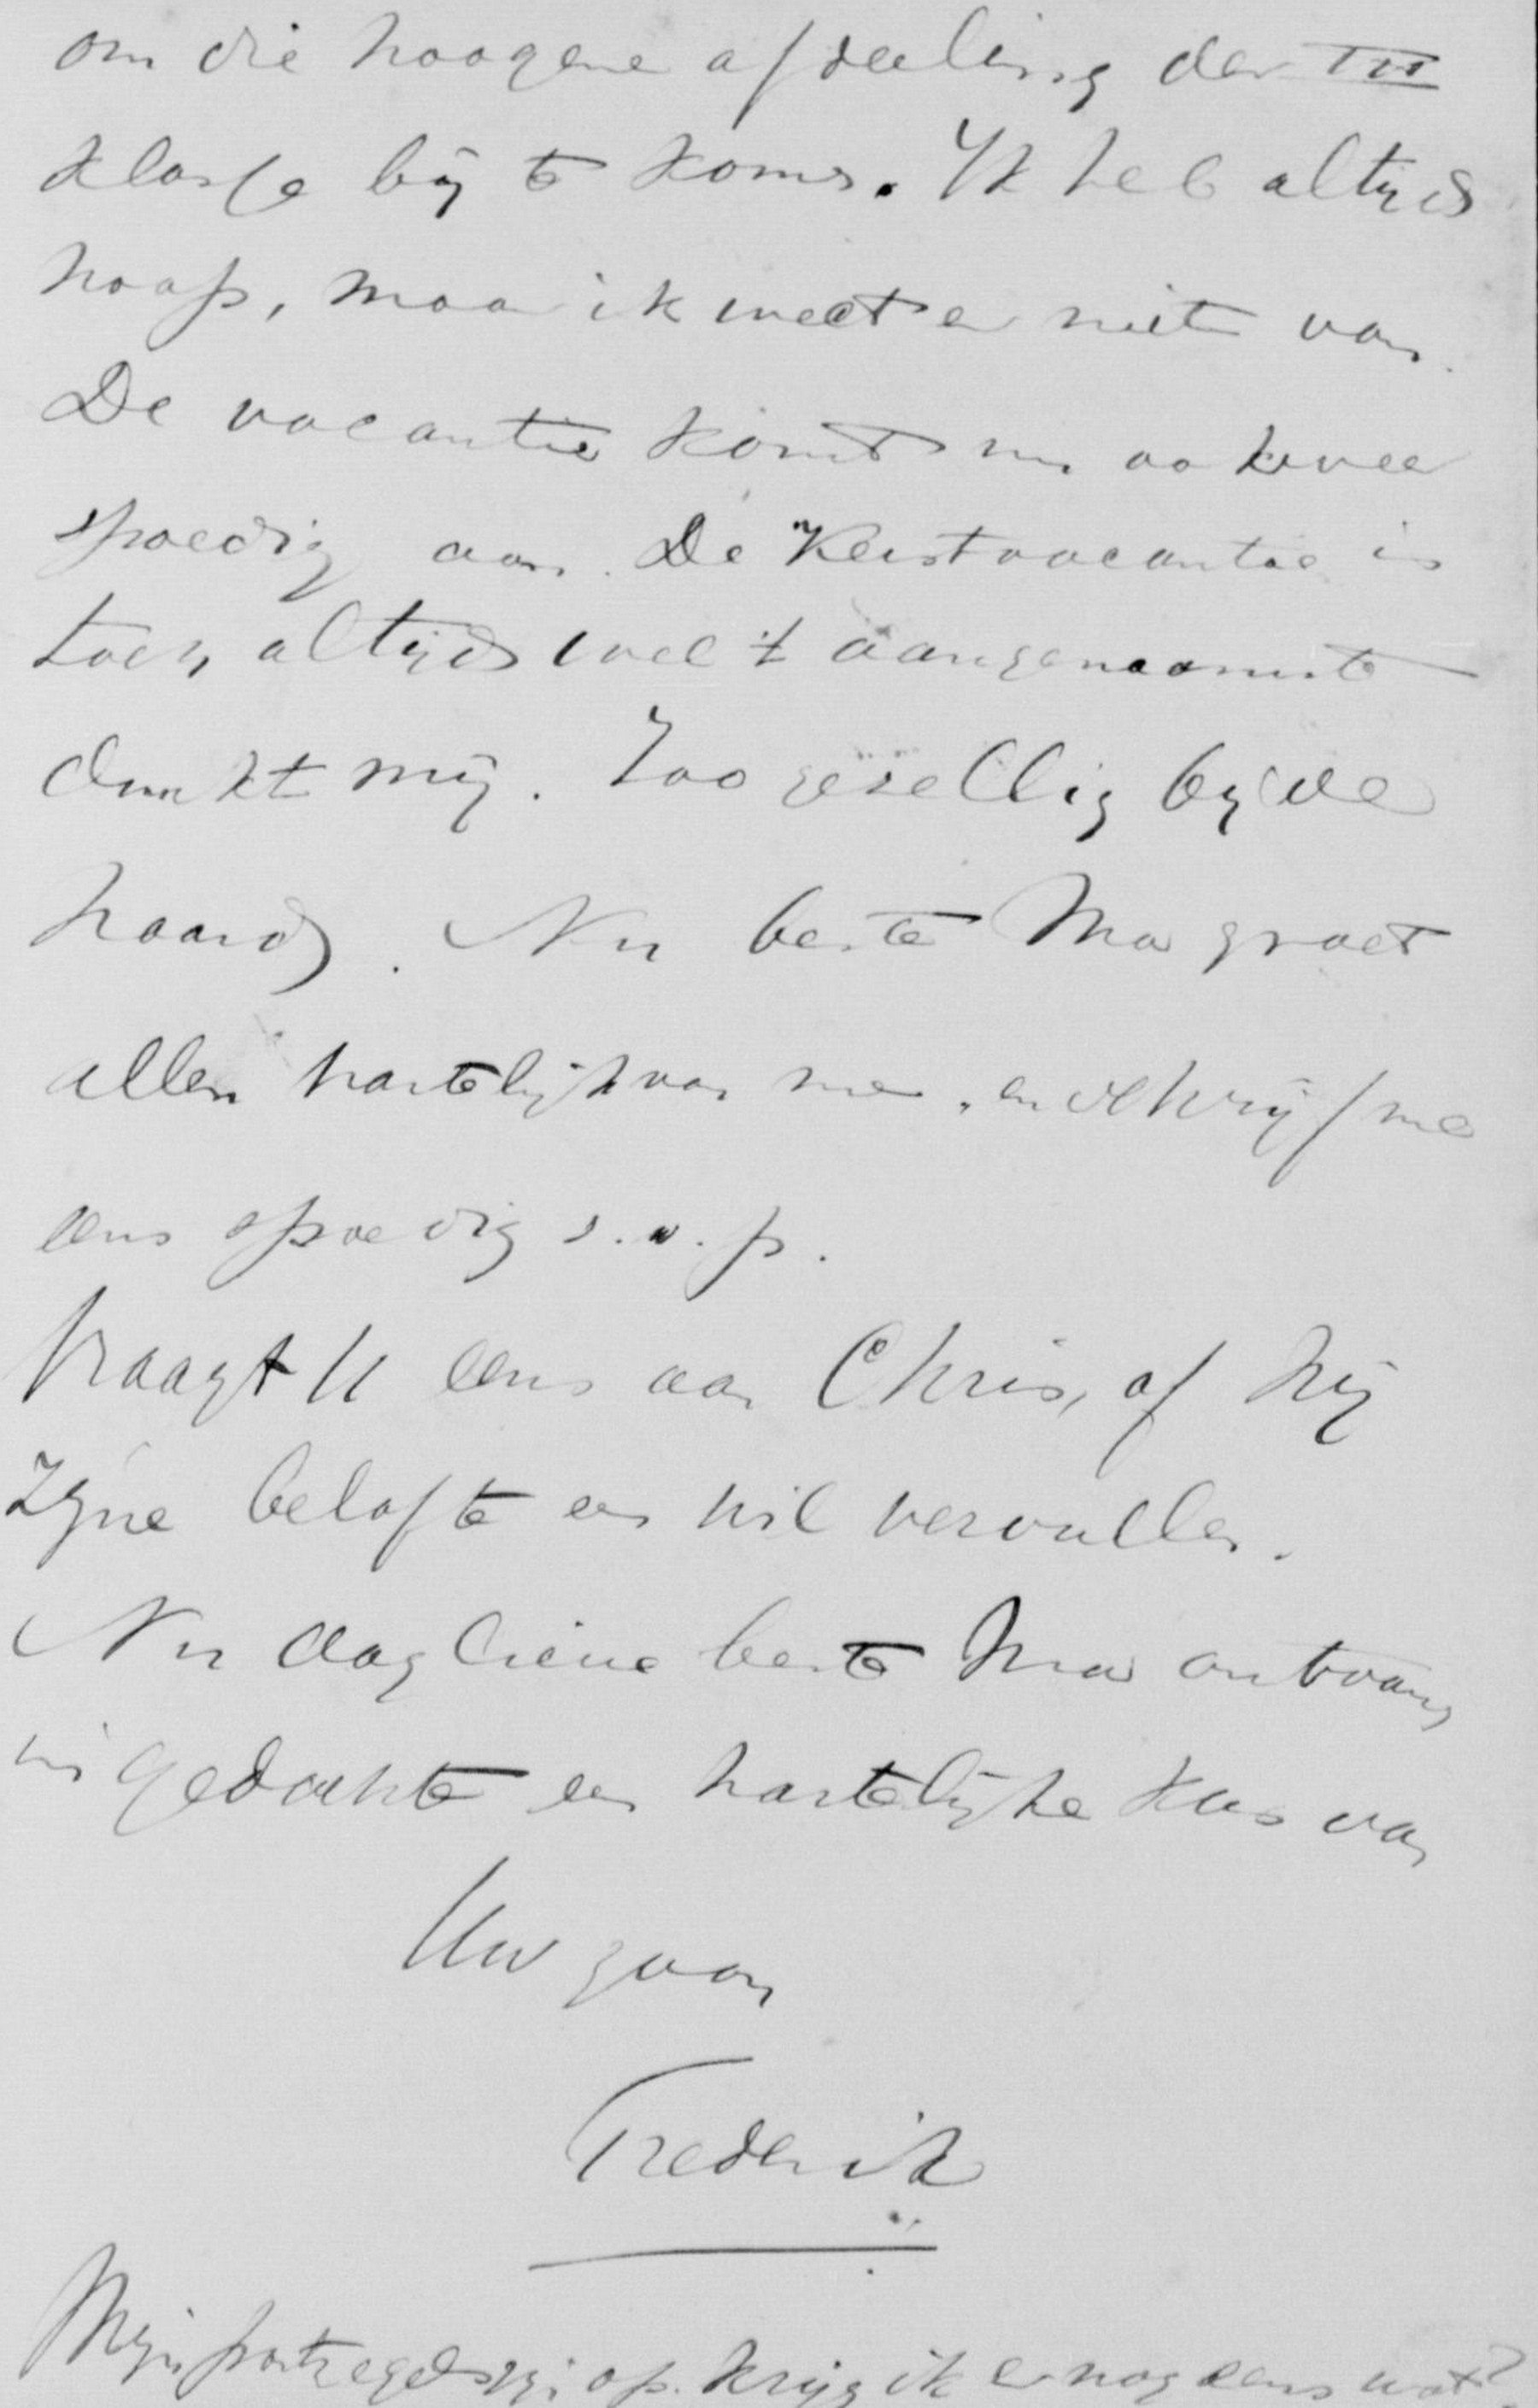 om die hoogere afdeeling der III
klasse bij te komen. Ik heb altijd
hoop, maar ik weet er niet van.
De vacantie komt nu ook weer
spoedig aan. De Kerstvacantie is
toch altijd wel 't aangenaamste
dunkt mij. Zoo gezellig bij de
haard. Nu beste Ma groet
allen hartelijk van me, en schrijf me
eens spoedig s.v.p.
Vraagt U eens aan Chris, of hij
zijne belofte en wil vervullen.
Nu dag lieve beste Ma ontvang
in gedachte een hartelijke kus van
Uw zoon
Frederik
Mijn postzegels zijn op. Krijg ik er nog eens wat?